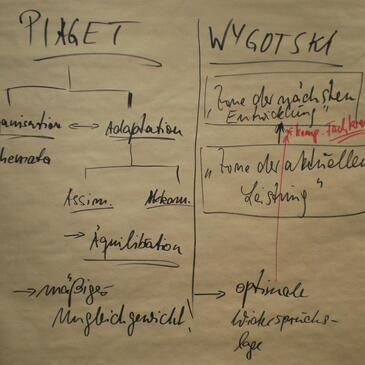 PIAGET
anisation ↔ Adaptation
hemata
Assim. Akkom.
→ Äquilibration
→ mäßiges
Ungleichgewicht!
WYGOTSKI
„Zone der nächsten
Entwicklung"
komp. Fachkra
„Zone der aktuellen
Leistung"
→ optimale
Widerspruchs-
lage